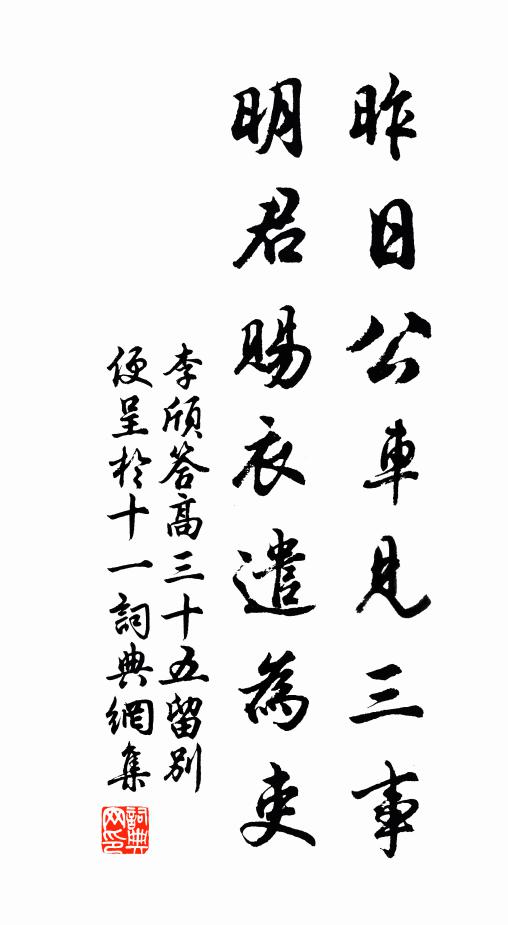 昨日公車見三事
明君賜衣遣為吏
李頎答高三十五留別
便呈於十一詞典網集
詞典
网印